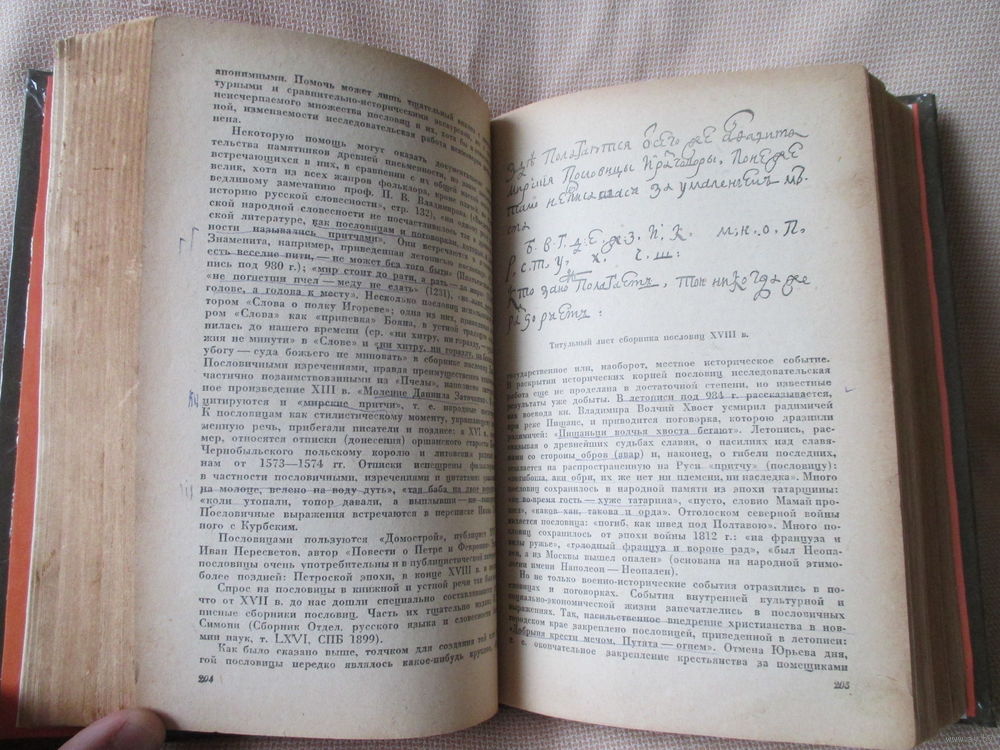 анонимными. Помочь может лишь тщательный
турными и сравнительно-историческими
неисчерпаемого множества пословиц и их, хотя бы
ной, изменяемости исследовательская работа
нена.
Некоторую помощь могут оказать
тельства памятников древней письменности, но
встречающихся в них, в сравнении с их общей
велик, хотя из всех жанров фольклора, кроме
ведливому замечанию проф. П. В. Владимирова
историю русской словесности», стр. 132), «ни
ской народной словесности не посчастливилось так в
ской литературе, как пословицам и поговоркам,
ности назывались притчами». Они встречаются в
Знаменита, например, приведенная летописью
есть веселие пити, — не может без того быти»
пись под 980 г.); «мир стоит до рати, а рать — до
«не погнетши пчел — меду не едать» (1231),
голове, а голова к месту». Несколько пословиц
тором «Слова о полку Игореве»; одна из них,
ром «Слова» как «припевка» Бояна, в устной
нилась до нашего времени (ср. «ни хитру, ни горазду, —
жия не минути» в «Слове» и «ни хитру, ни горазду, ни
убогу — суда божьего не миновать» в сборнике
Пословичными изречениями, правда преимущественно
частично позаимствованными из «Пчелы»,
ное произведение XIII в. «Моление Даниила Заточника»
цитируются и «мирские притчи», т. е. народные
К пословицам как стилистическому моменту,
менную речь, прибегали писатели и позднее: к XVI в.
мер, относятся отписки (донесения) оршанского старосты
Чернобыльского польскому королю и литовским
нам от 1573—1574 гг. Отписки испещрены
в частности пословичными, изречениями и цитатами
на молоце, велено на воду дуть», «так баба на двое
«коли утопали, топор давали, а выплывши —
Пословичные выражения встречаются в переписке Ивана
ного с Курбским.
Пословицами пользуются «Домострой», публицист
Иван Пересветов, автор «Повести о Петре и Февронии»
пословицы очень употребительны и в публицистической
более поздней: Петровской эпохи, в конце XVIII в.
Спрос на пословицы в книжной и устной речи так
что от XVII в. до нас дошли специально
писные сборники пословиц. Часть их тщательно
Симони (Сборник Отдел. русского языка и словесности
мии наук, т. LXVI, СПБ 1899).
Как было сказано выше, толчком для создания той или
гой пословицы нередко являлось какое-нибудь крупное,
204
Здѣ полагаются всего же алфавита
мирския пословицы и
там неписашася за умалением мѣ
ста
б. в. г. д. е. ж. з. и. к. м. н. о. п.
р. с. т. у. х. ч. ш.
кто зано полагаетъ, той никогда же
разоряетъ:
Титульный лист сборника пословиц XVIII в.
государственное или, наоборот, местное историческое событие.
В раскрытии исторических корней пословиц исследовательская
работа еще не проделана в достаточной степени, но известные
результаты уже добыты. В летописи под 984 г. рассказывается,
как воевода кн. Владимира Волчий Хвост усмирил радимичей
при реке Пищане, и приводится поговорка, которою дразнили
радимичей: «Пищаньци волчья хвоста бегают». Летопись, рас-
сказывая о древнейших судьбах славян, о насилиях над славя-
нами со стороны обров (авар) и, наконец, о гибели последних,
ссылается на распространенную на Руси «притчу» (пословицу):
«погибоша, аки обри, их же нет ни племени, ни наследка». Много
пословиц сохранилось в народной памяти из эпохи татарщины:
«не во-время гость — хуже татарина», «пусто, словно Мамай про-
шел», «каков хан, такова и орда». Отголоском северной войны
является пословица: «погиб, как швед под Полтавою». Много по-
словиц сохранилось от эпохи войны 1812 г.: «на француза и
вилы ружье», «голодный француз и вороне рад», «был Неопа-
лен, а из Москвы вышел опален» (основана на народной этимо-
логии имени Наполеон — Неопален).
Но не только военно-исторические события отразились в по-
словицах и поговорках. События внутренней культурной и
социально-экономической жизни запечатлелись в пословичных
выражениях. Так, насильственное внедрение христианства в нов-
городском крае закреплено пословицей, приведенной в летописи:
«Добрыня крести мечом, Путята — огнем». Отмена Юрьева дня,
т. е. окончательное закрепление крестьянства за помещиками
205